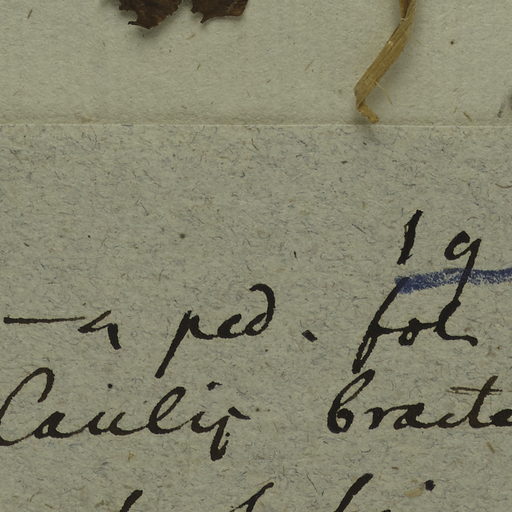 19
—a ped. fol
Caulis bracte